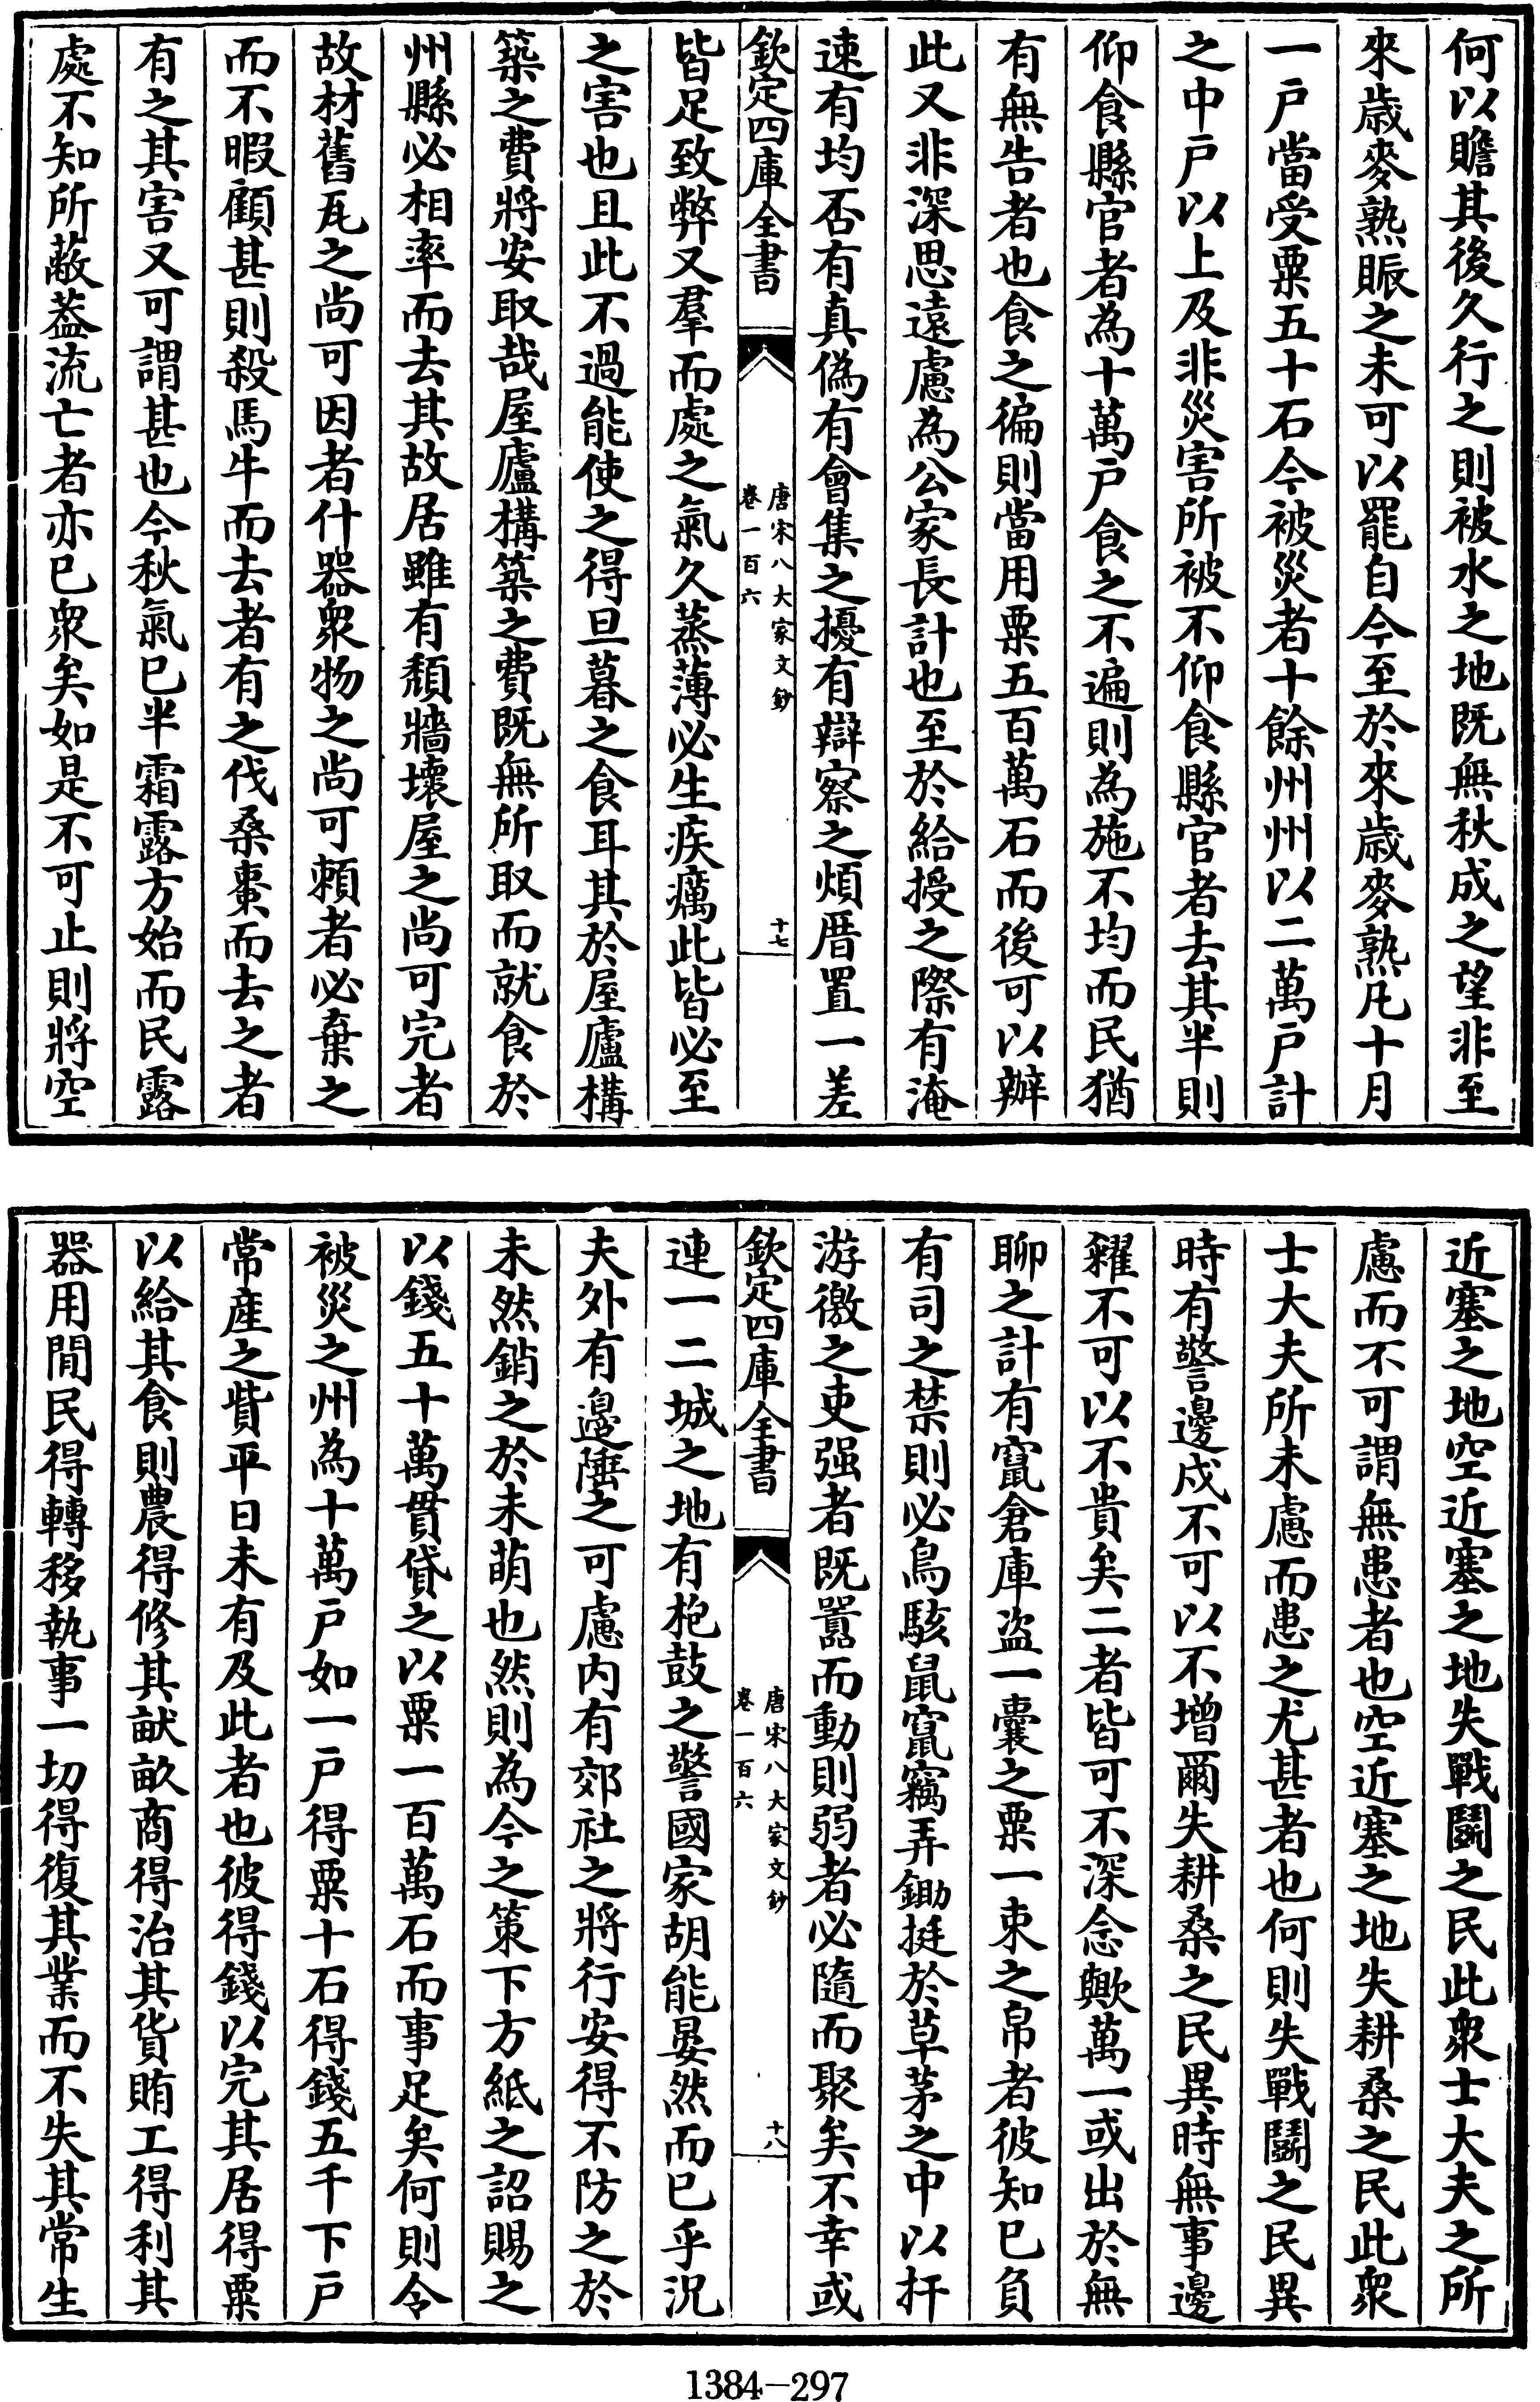 何以贍其後久行之則被水之地既無秋成之望非至
來歳麥熟賑之未可以罷自今至於來歳麥熟凡十月
一戶當受粟五十石今被災者十餘州州以二萬戶計
之中戶以上及非災害所被不仰食縣官者去其半則
仰食縣官者為十萬戶食之不遍則為施不均而民猶
有無告者也食之徧則當用粟五百萬石而後可以辦
此又非深思遠慮為公家長計也至於給授之際有淹
速有均否有真偽有會集之擾有辯察之煩厝置一差
欽定四庫全書
唐宋八大家文鈔
卷一百六
十七
皆足致弊又羣而處之氣久蒸薄必生疾癘此皆必至
之害也且此不過能使之得旦暮之食耳其於屋廬構
築之費將安取哉屋廬構築之費既無所取而就食於
州縣必相率而去其故居雖有頹牆壞屋之尚可完者
故材舊瓦之尚可因者什器衆物之尚可頼者必棄之
而不暇顧甚則殺馬牛而去者有之伐桑棗而去之者
有之其害又可謂甚也今秋氣已半霜露方始而民露
處不知所蔽葢流亡者亦已衆矣如是不可止則將空
近塞之地空近塞之地失戰鬬之民此衆士大夫之所
慮而不可謂無患者也空近塞之地失耕桑之民此衆
士大夫所未慮而患之尤甚者也何則失戰鬬之民異
時有警邊戍不可以不增爾失耕桑之民異時無事邊
糴不可以不貴矣二者皆可不深念歟萬一或出於無
聊之計有窺倉庫盜一囊之粟一束之帛者彼知已負
有司之禁則必鳥駭鼠竄竊弄鋤挺於草茅之中以扞
游徼之吏强者既嚚而動則弱者必隨而聚矣不幸或
欽定四庫全書
唐宋八大家文鈔
卷一百六
十八
連一二城之地有枹鼓之警國家胡能晏然而已乎況
夫外有邉陲之可慮内有郊社之將行安得不防之於
未然銷之於未萌也然則為今之策下方紙之詔賜之
以錢五十萬貫貸之以粟一百萬石而事足矣何則今
被災之州為十萬戶如一戶得粟十石得錢五千下戶
常産之貲平日未有及此者也彼得錢以完其居得粟
以給其食則農得修其畎畝商得治其貨賄工得利其
器用閒民得轉移執事一切得復其業而不失其常生
1384-297